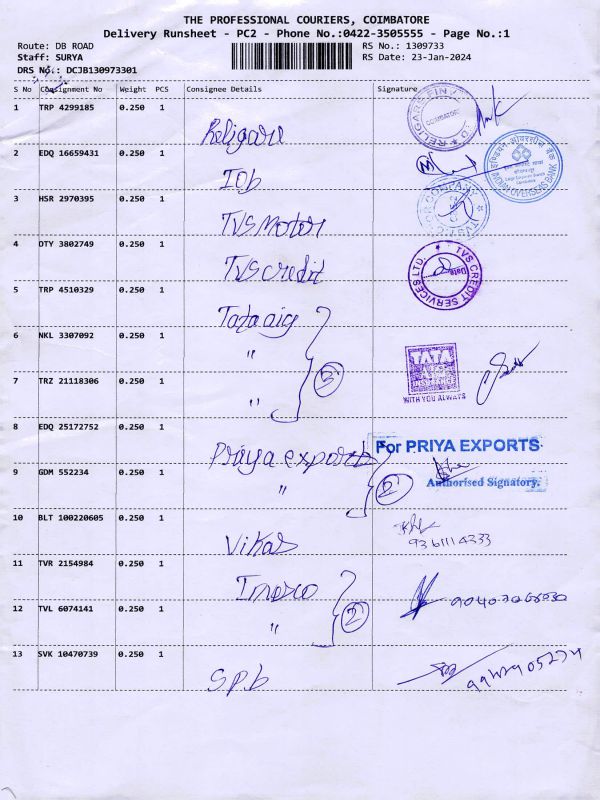 THE PROFESSIONAL COURIERS, COIMBATORE
Delivery Runsheet - PC2 - Phone No.:0422-3505555 - Page No.:1
Route: DB ROAD
RS No.: 1309733
Staff: SURYA
RS Date: 23-Jan-2024
DRS No.: DCJB130973301
S No Consignment No Weight PCS Consignee Details Signature
1 TRP 4299185 0.250 1 Religare
RELIGARE FIN
COIMBATORE
2 EDQ 16659431 0.250 1 IOb
इण्डियन ओवरसीज बैंक
INDIAN OVERSEAS BANK
3 HSR 2970395 0.250 1 TVS Motor
TVS MOTOR COMPANY
4 DTY 3802749 0.250 1 TVS credit
TVS CREDIT SERVICES LTD.
Date
5 TRP 4510329 0.250 1 Tata aig
6 NKL 3307092 0.250 1 "
3
TATA
AIG
INSURANCE
WITH YOU ALWAYS
7 TRZ 21118306 0.250 1 "
8 EDQ 25172752 0.250 1 Priya exports
For PRIYA EXPORTS
9 GDM 552234 0.250 1 "
2
Authorised Signatory.
10 BLT 100220605 0.250 1 Vikas
9361114333
11 TVR 2154984 0.250 1
12 TVL 6074141 0.250 1 "
2
13 SVK 10470739 0.250 1 Spb